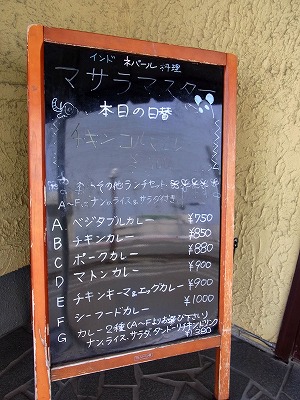 インド ネパール 料理
マサラマスター
本日の日替
チキンコルマカレー
～その他ランチセット
A～F、ナンorライス&サラダ付き
A ベジタブルカレー ¥750
B チキンカレー ¥850
C ポークカレー ¥880
D マトンカレー ¥900
E チキンキーマ&エッグカレー ¥900
F シーフードカレー ¥1000
G カレー2種(A～Fよりお選び下さい)
ナン、ライス、サラダ、タンドーリチキン、ドリンク
¥1380